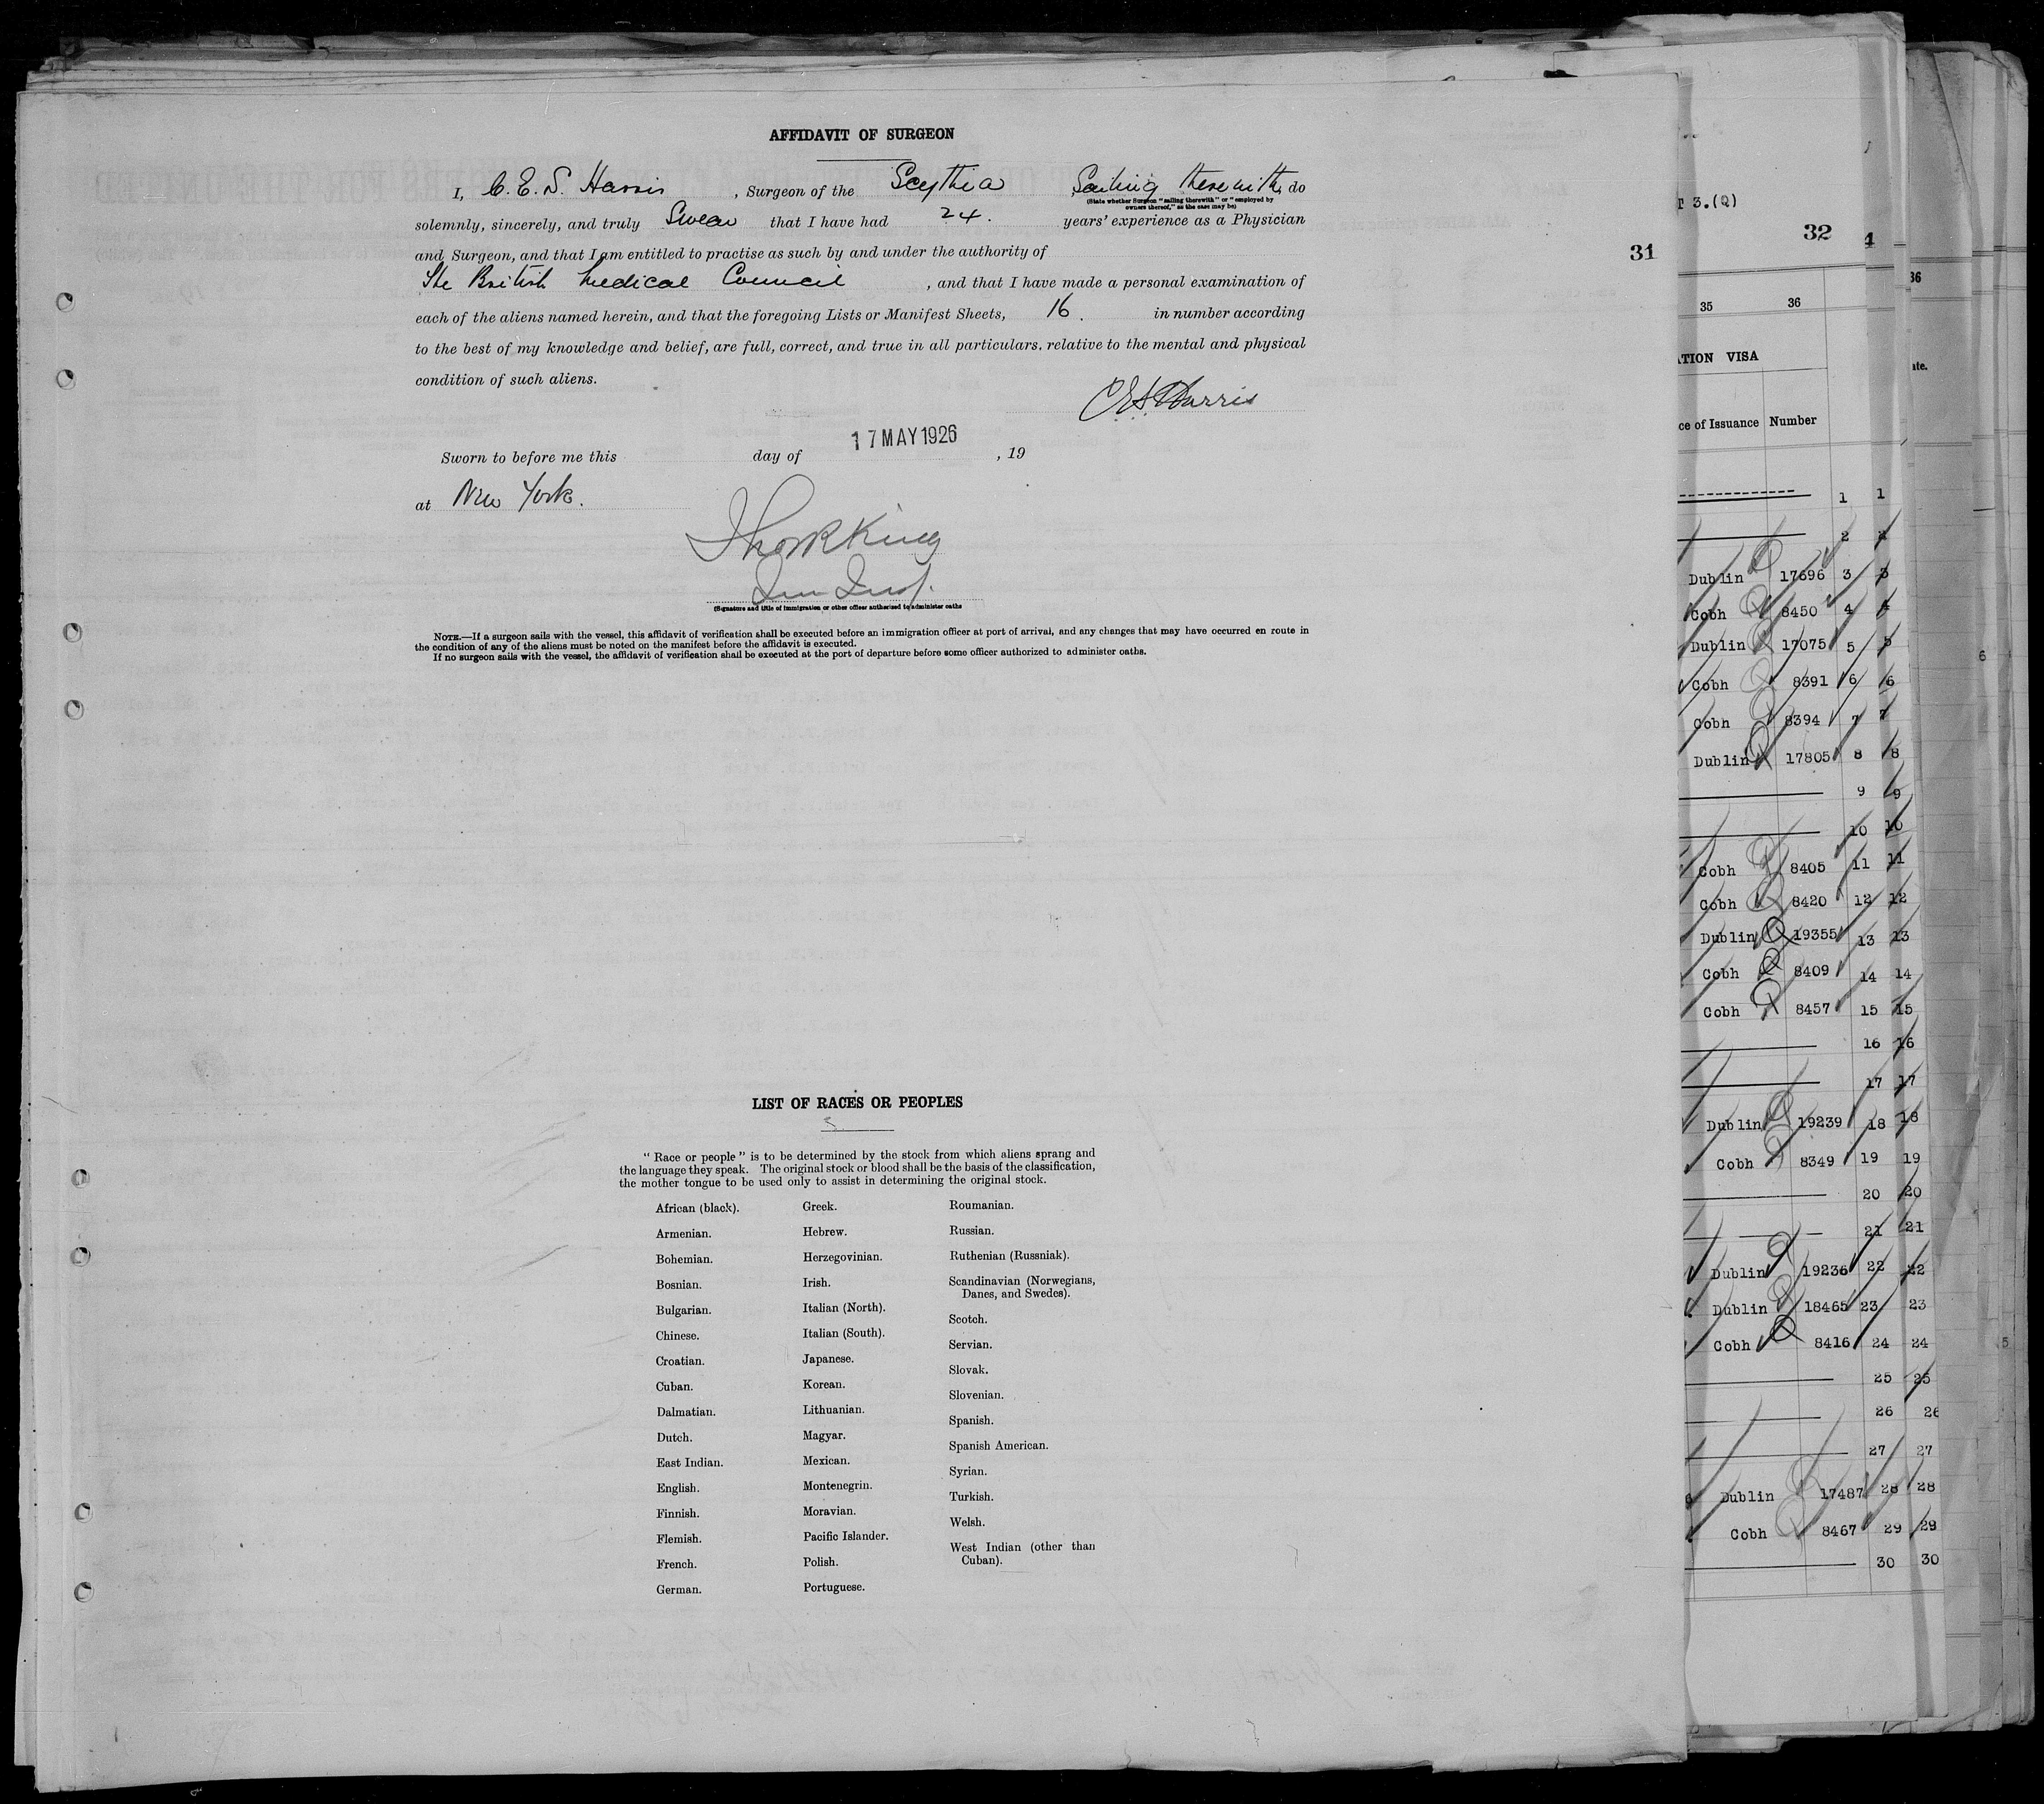 AFFIDAVIT OF SURGEON
I, C. E. S. Harris, Surgeon of the Scythia Sailing therewith, do
(State whether Surgeon "sailing therewith" or "employed by
owners thereof," as the case may be)
solemnly, sincerely, and truly Swear that I have had 24. years' experience as a Physician
and Surgeon, and that I am entitled to practise as such by and under the authority of
The British Medical Council, and that I have made a personal examination of
each of the aliens named herein, and that the foregoing Lists or Manifest Sheets, 16. in number according
to the best of my knowledge and belief, are full, correct, and true in all particulars. relative to the mental and physical
condition of such aliens.
CES Harris
17 MAY 1926
Sworn to before me this day of , 19
at New York.
King
Imm Insp.
(Signature and title of immigration or other officer authorized to administer oaths
NOTE.—If a surgeon sails with the vessel, this affidavit of verification shall be executed before an immigration officer at port of arrival, and any changes that may have occurred en route in
the condition of any of the aliens must be noted on the manifest before the affidavit is executed.
If no surgeon sails with the vessel, the affidavit of verification shall be executed at the port of departure before some officer authorized to administer oaths.
LIST OF RACES OR PEOPLES
"Race or people" is to be determined by the stock from which aliens sprang and
the language they speak. The original stock or blood shall be the basis of the classification,
the mother tongue to be used only to assist in determining the original stock.
African (black).
Armenian.
Bohemian.
Bosnian.
Bulgarian.
Chinese.
Croatian.
Cuban.
Dalmatian.
Dutch.
East Indian.
English.
Finnish.
Flemish.
French.
German.
Greek.
Hebrew.
Herzegovinian.
Irish.
Italian (North).
Italian (South).
Japanese.
Korean.
Lithuanian.
Magyar.
Mexican.
Montenegrin.
Moravian.
Pacific Islander.
Polish.
Portuguese.
Roumanian.
Russian.
Ruthenian (Russniak).
Scandinavian (Norwegians,
Danes, and Swedes).
Scotch.
Servian.
Slovak.
Slovenian.
Spanish.
Spanish American.
Syrian.
Turkish.
Welsh.
West Indian (other than
Cuban).
31
3.(Q)
32
4
35 36
36
TION VISA
ate.
ce of Issuance Number
1 1
2 2
Dublin Q 17696 3 3
Cobh Q 8450 4 4
Dublin Q 17075 5 5
Cobh Q 8391 6 6
Cobh Q 8394 7 7
Dublin Q 17805 8 8
9 9
10 10
Cobh Q 8405 11 11
Cobh Q 8420 12 12
Dublin Q 19355 13 13
Cobh Q 8409 14 14
Cobh Q 8457 15 15
16 16
17 17
Dublin Q 19239 18 18
Cobh Q 8349 19 19
20 20
21 21
Dublin Q 19236 22 22
Dublin Q 18465 23 23
Cobh Q 8416 24 24
25 25
26 26
27 27
Dublin Q 17487 28 28
Cobh Q 8467 29 29
30 30
6
5